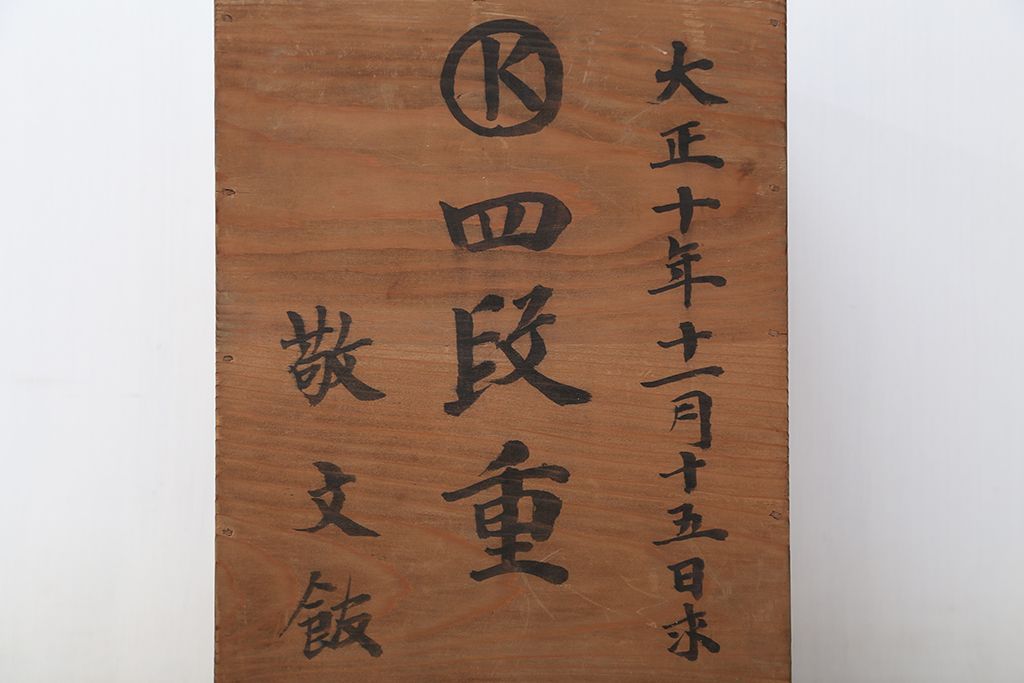 大正十年十一月十五日求
Ⓚ四段重
敬文